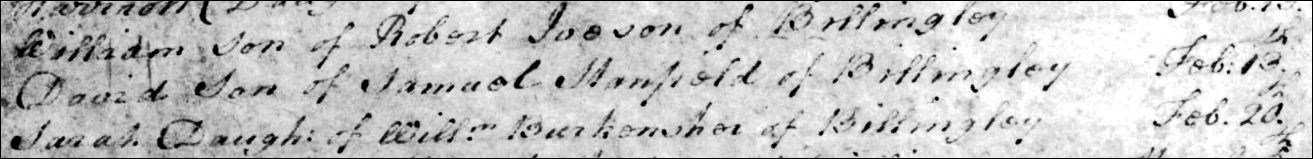 William son of Robert Iveson of Billingley Feb. 13.
David Son of Samuel Stanfield of Billingley Feb: 13.
Sarah Daugh: of Will.m Burkensher of Billingley Feb. 20.